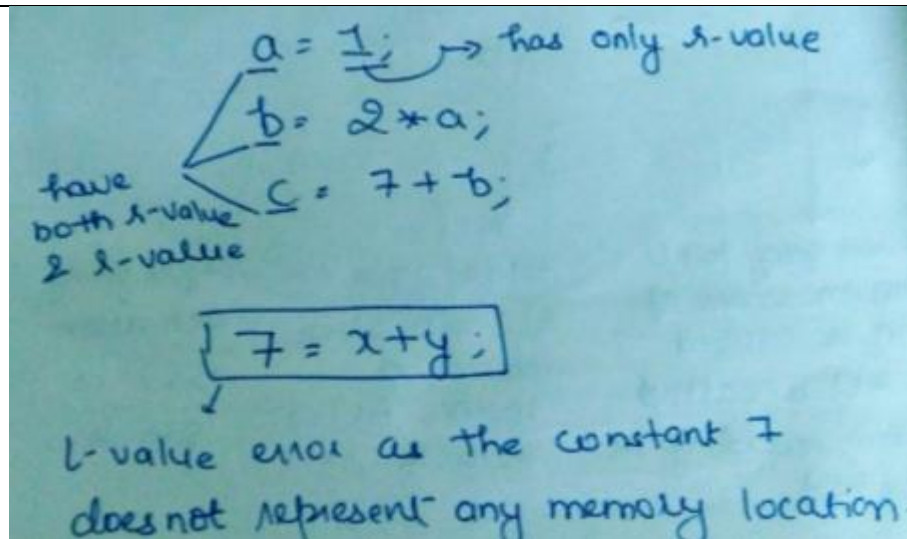 a = 1; → has only r-value
b = 2*a;
c = 7+b;
have
both r-value
& l-value
7 = x+y;
l-value error as the constant 7
does not represent any memory location